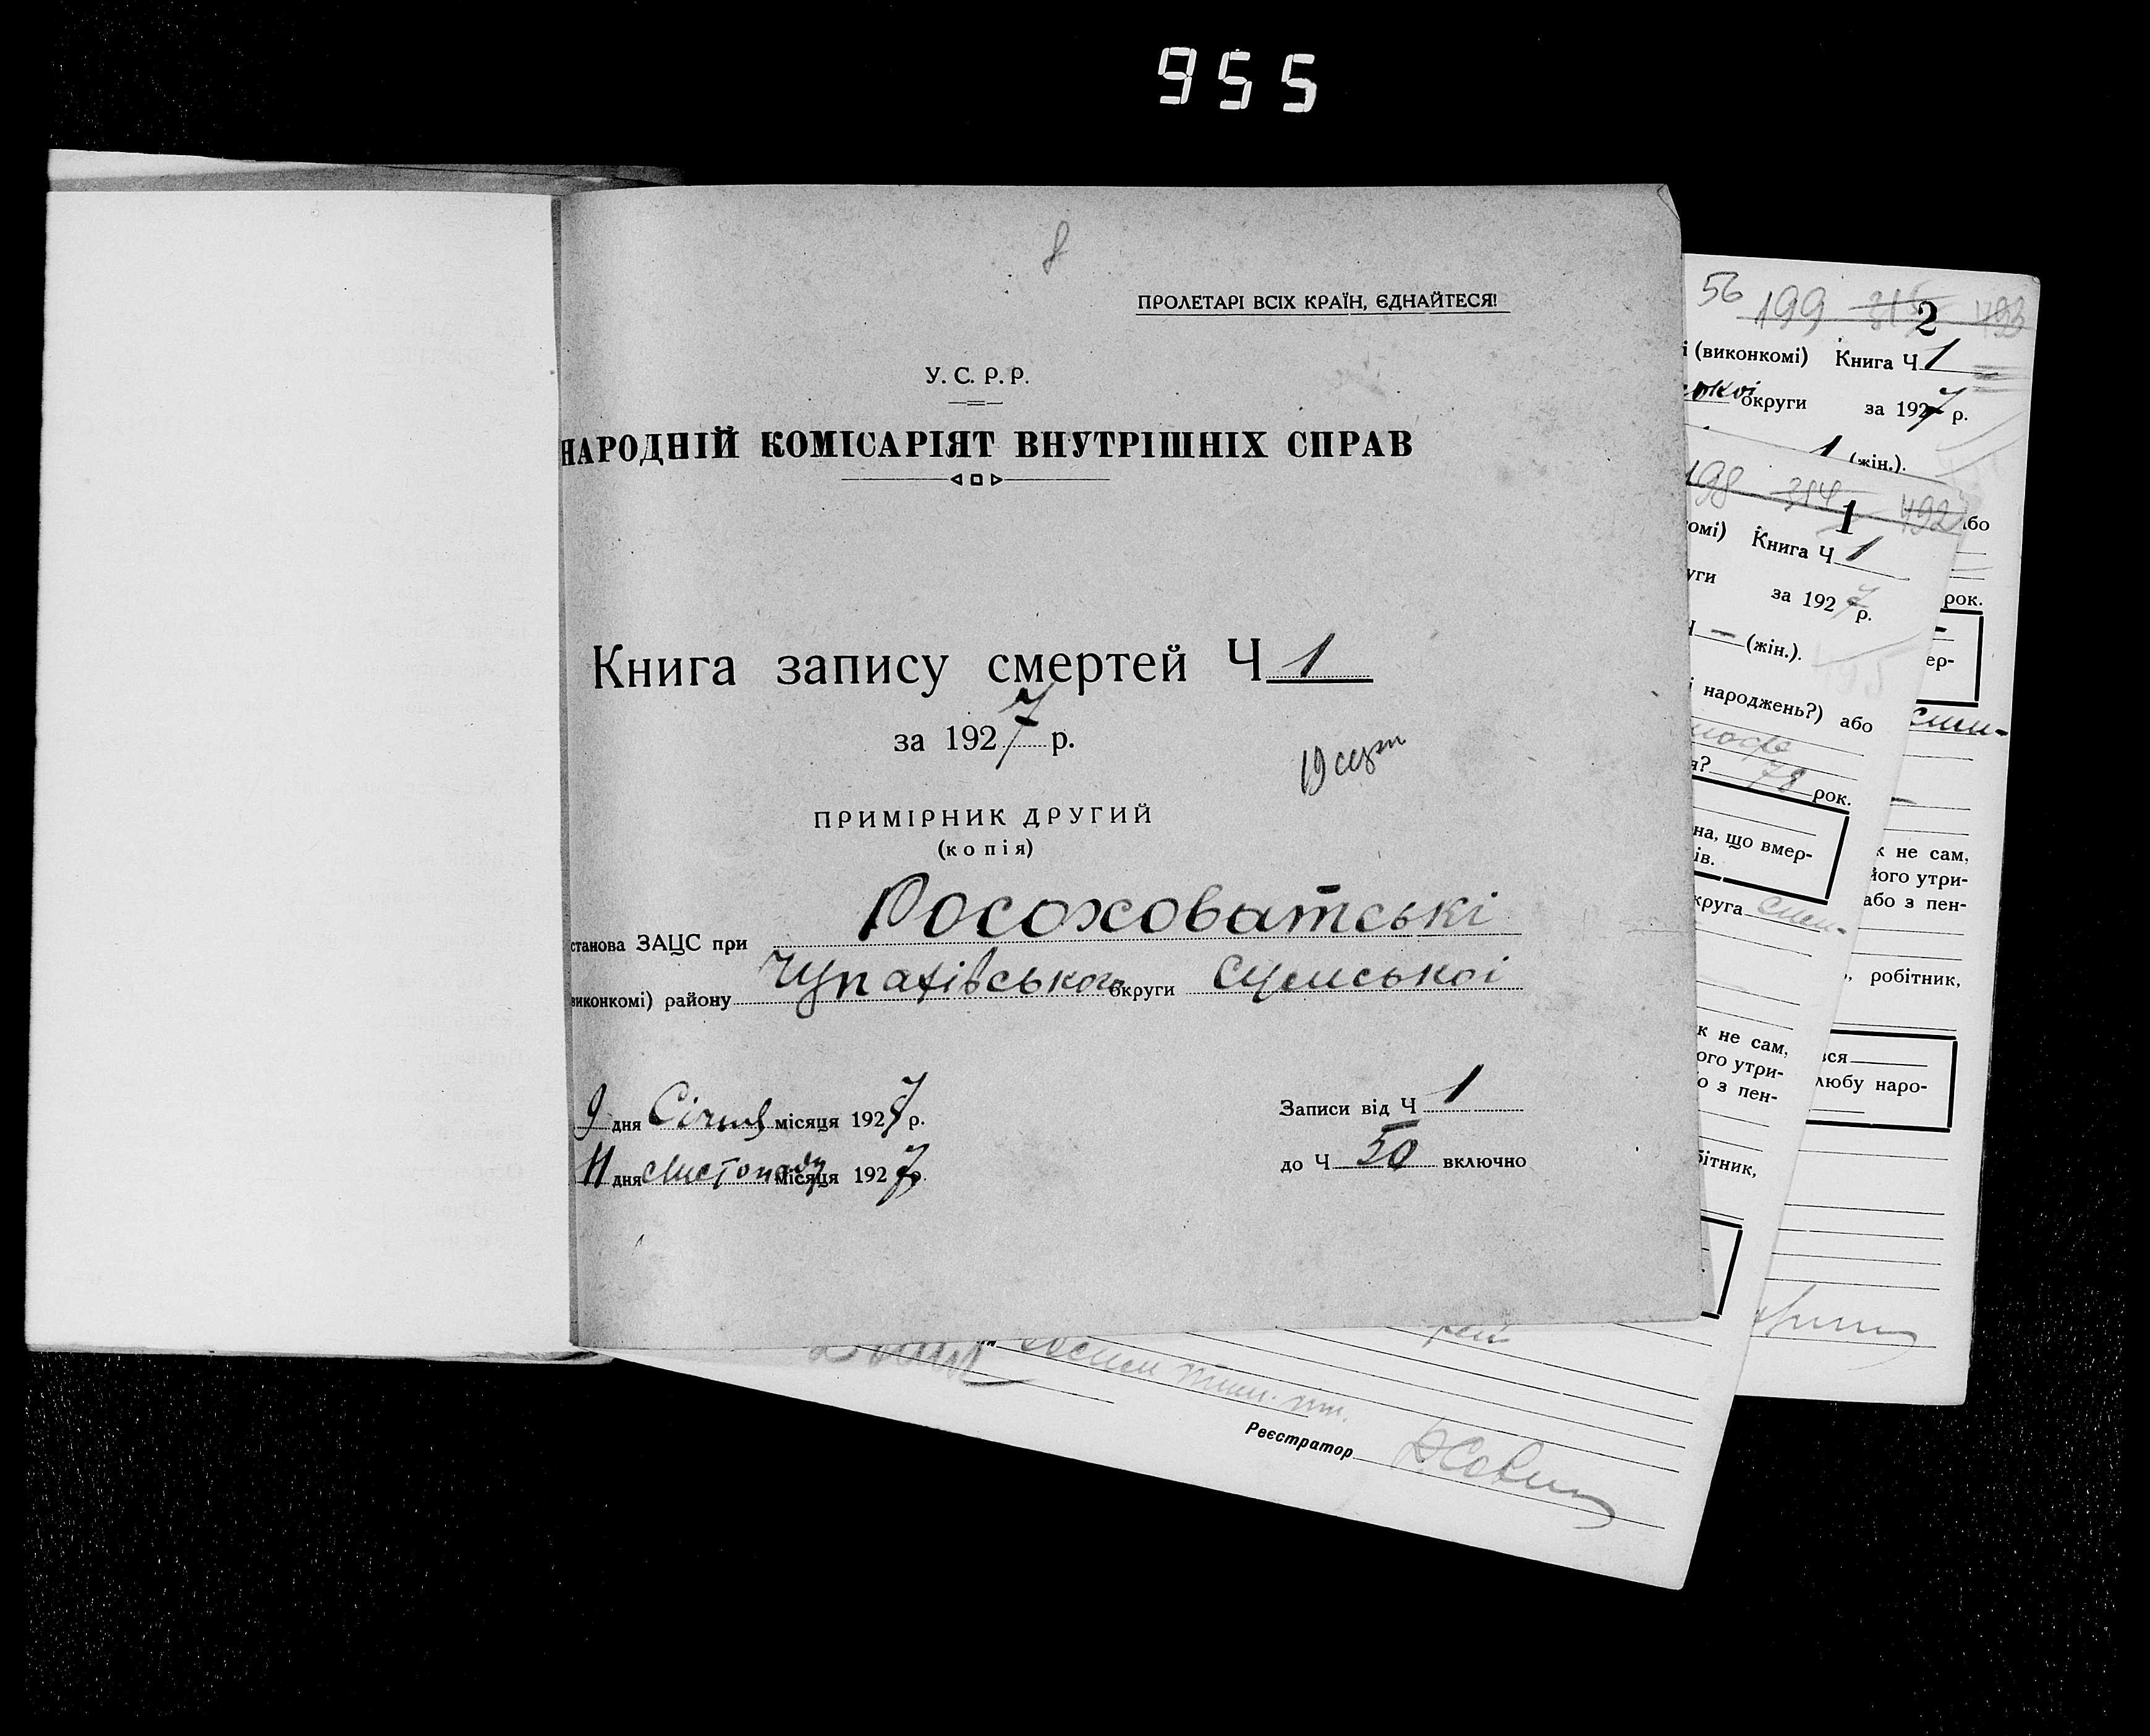 955
8
ПРОЛЕТАРІ ВСІХ КРАЇН, ЄДНАЙТЕСЯ!
У. С. Р. Р.
НАРОДНІЙ КОМІСАРІЯТ ВНУТРІШНІХ СПРАВ
Книга запису смертей Ч 1
за 1927 р.
ПРИМІРНИК ДРУГИЙ
(копія)
станова ЗАЦС при Росоховатські
виконкомі) району Чупахівського округи Сумської
9 дня Січня місяця 1927 р.
11 дня Листопаду місяця 1927 р.
Записи від Ч 1
до Ч 50 включно
56 199 315 2 493
і (виконкомі) Книга Ч 1
ської округи за 1927 р.
1 (жін.).
або
рок.
ер-
к не сам,
його утри-
або з пен-
, робітник,
вся
любу наро-
198 314 1 492
омі) Книга Ч 1
уги за 1927 р.
Ч — (жін.).
і народжень?) або
я? 78 рок.
на, що вмер-
ів.
круга
к не сам,
ого утри-
о з пен-
бітник,
Реєстратор